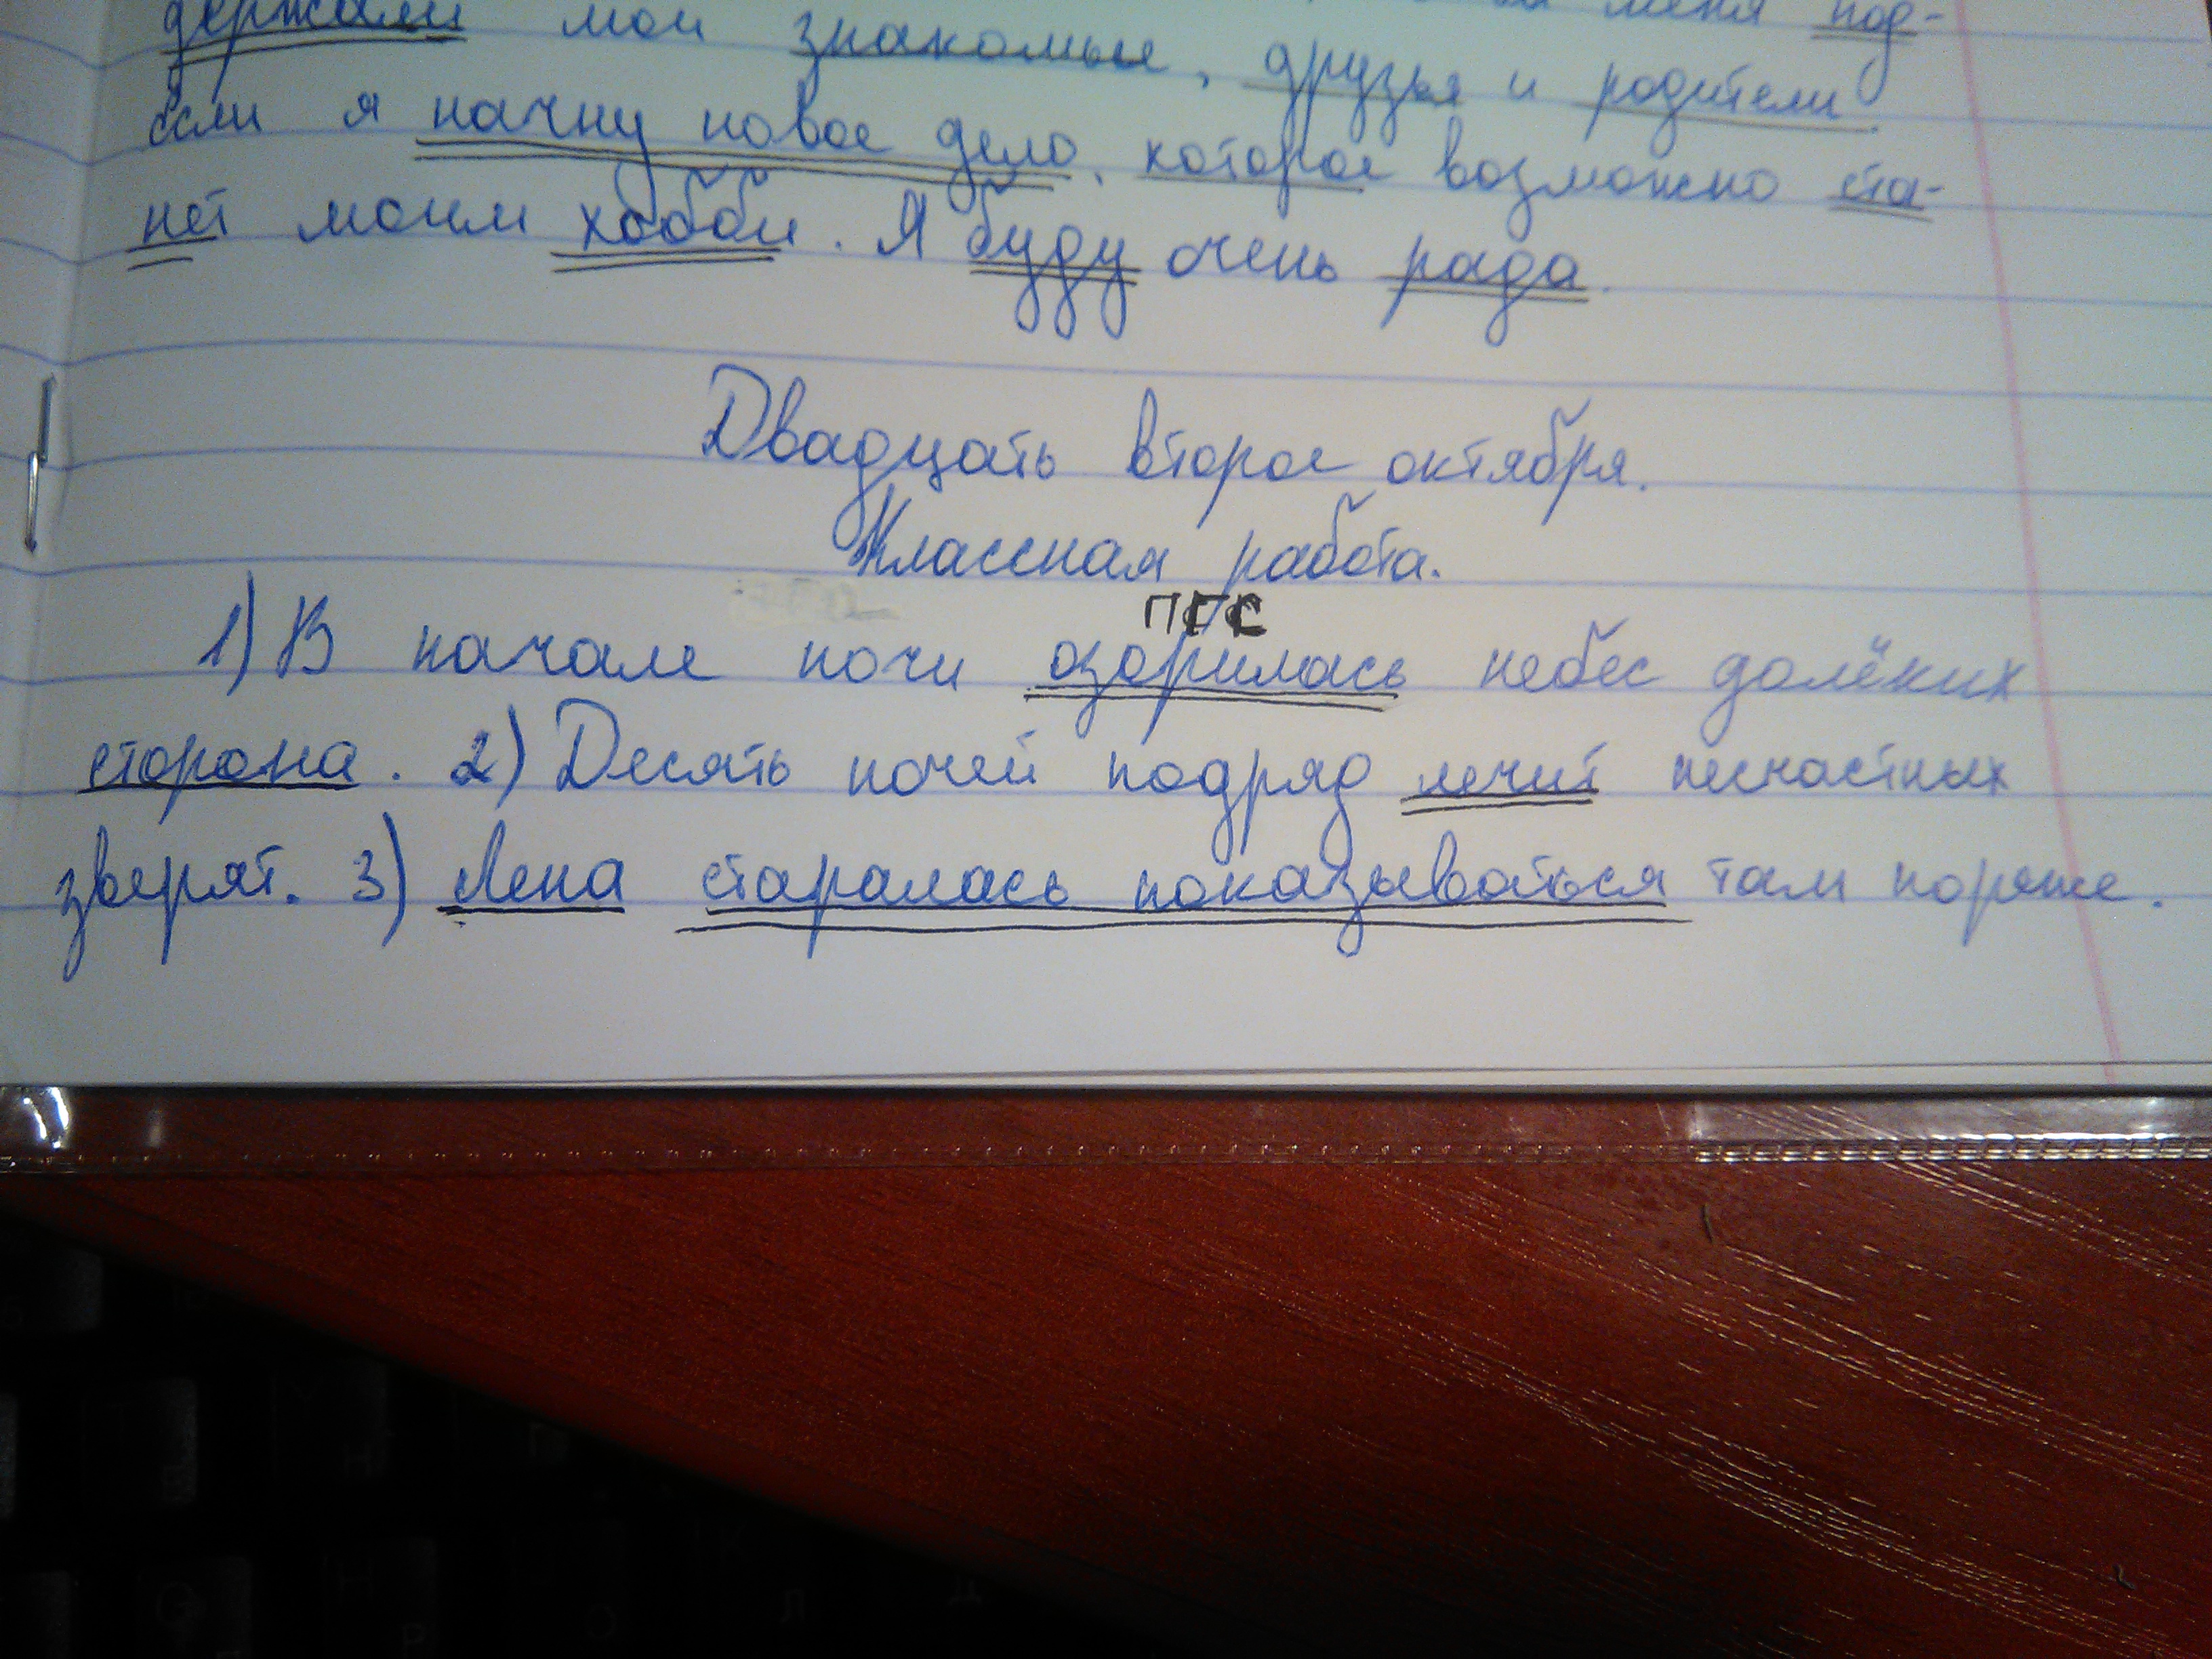 меня под-
держали мои знакомые, друзья и родители
если я начну новое дело, которое возможно ста-
нет моим хобби. Я буду очень рада.
Двадцать второе октября.
Классная работа.
ПГС
1) В начале ночи озорилась небес далёких
сторона. 2) Десять ночей подряд лечит несчастных
зверят. 3) Лена старалась показываться там пореже.